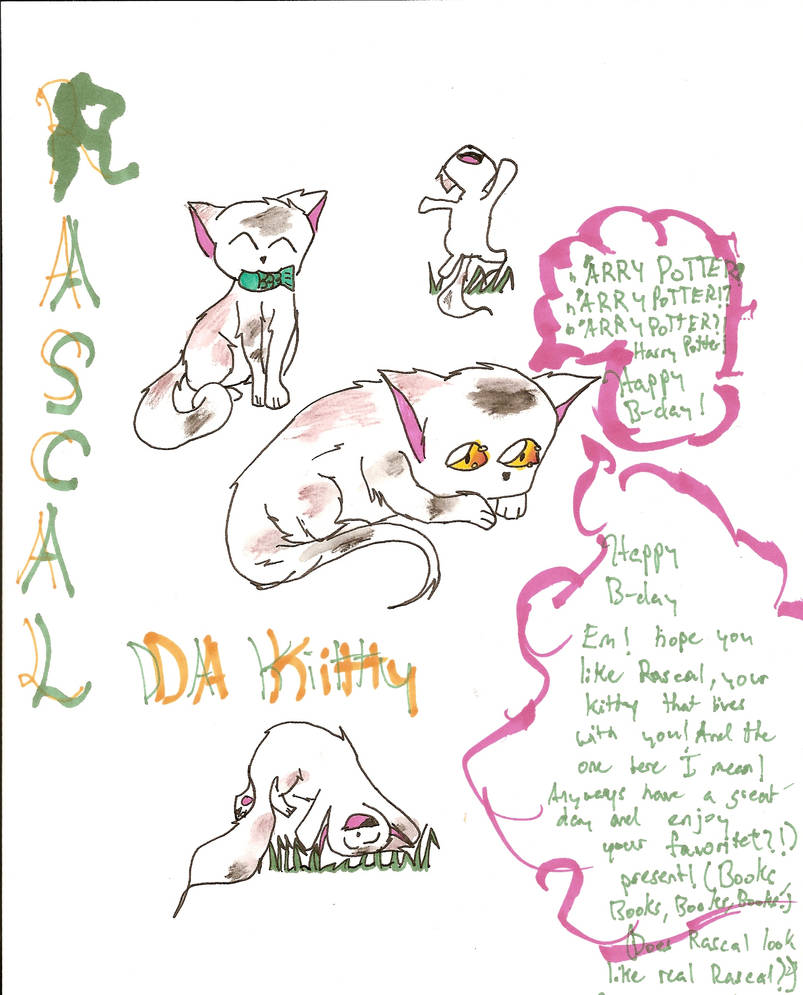 RASCAL
DA Kitty
"'ARRY POTTER?
"'ARRY POTTER!?
"'ARRY POTTER?!
Harry Potter!
Happy
B-day!
Happy
B-day
Em! hope you
like Rascal, your
kitty that lives
with you! And the
one here I mean!
Anyways have a great
day and enjoy
your favoritet?!)
present! (Books,
Books, Books, Books!)
(Does Rascal look
like real Rascal?)